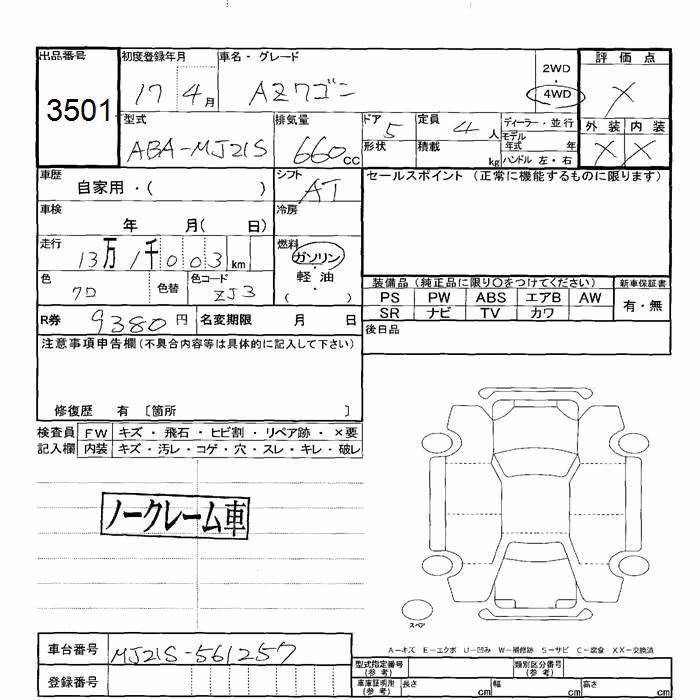 出品番号
3501
初度登録年月
17 4月
車名・グレード
AZワゴン
2WD
・
4WD
評価点
X
外装 内装
X X
型式
ABA-MJ21S
排気量
660cc
ドア
5
形状
定員
4人
積載
kg
ディーラー・並行
モデル
年式 年
ハンドル 左・右
車歴
自家用・( )
シフト
AT
車検
年 月( 日)
冷房
走行
13万1千003km
燃料
ガソリン
軽油
・
( )
色
7D
色替
色コード
ZJ3
R券
9380円
名変期限 月 日
セールスポイント (正常に機能するものに限ります)
装備品(純正品に限り○をつけてください)
新車保証書
PS PW ABS エアB AW
SR ナビ TV カワ
有・無
後日品
注意事項申告欄(不具合内容等は具体的に記入して下さい)
修復歴 有 〔箇所 〕
検査員 FW キズ・飛石・ヒビ割・リペア跡・×要
記入欄 内装 キズ・汚レ・コゲ・穴・スレ・キレ・破レ
ノークレーム車
スペア
A-キズ E-エクボ U-凹み W-補修跡 S-サビ C-腐食 XX-交換済
車台番号
MJ21S-561257
登録番号
型式指定番号
(参考)
類別区分番号
(参考)
車庫証明用
(参考)
長さ cm
幅 cm
高さ cm